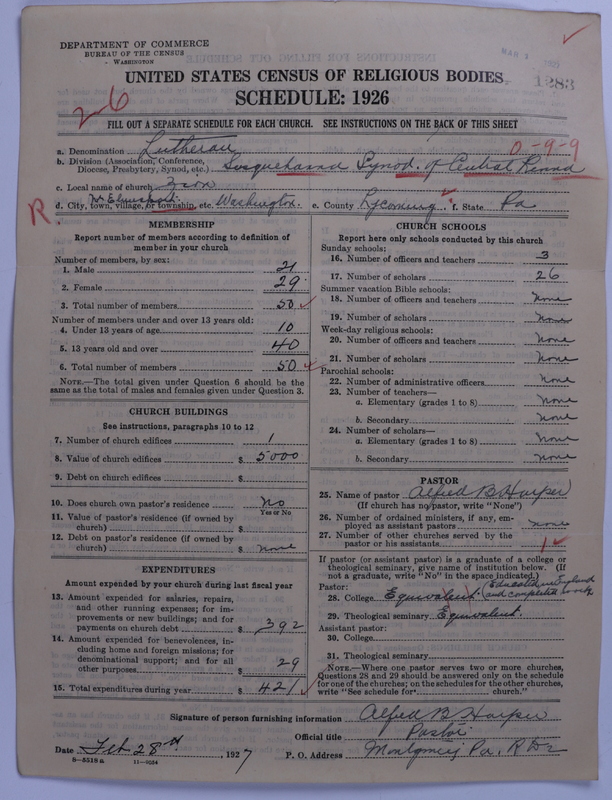 DEPARTMENT OF COMMERCE
BUREAU OF THE CENSUS
WASHINGTON
1283
UNITED STATES CENSUS OF RELIGIOUS BODIES
SCHEDULE: 1926
2-6
FILL OUT A SEPARATE SCHEDULE FOR EACH CHURCH. SEE INSTRUCTIONS ON THE BACK OF THIS SHEET
a. Denomination Lutheran 0-9-9
b. Division (Association, Conference, Diocese, Presbytery, Synod, etc.) Susquehanna Synod of Central Penna
c. Local name of church Zion
R d. City, town, village, or township, etc. Washington e. County Lycoming f. State Pa
MEMBERSHIP
Report number of members according to definition of
member in your church
Number of members, by sex:
1. Male 21
2. Female 29
3. Total number of members 50
Number of members under and over 13 years old:
4. Under 13 years of age 10
5. 13 years old and over 40
6. Total number of members 50
NOTE.—The total given under Question 6 should be the
same as the total of males and females given under Question 3.
CHURCH BUILDINGS
See instructions, paragraphs 10 to 12
7. Number of church edifices 1
8. Value of church edifices $ 5000
9. Debt on church edifices $
10. Does church own pastor's residence No
Yes or No
11. Value of pastor's residence (if owned by
church) $
12. Debt on pastor's residence (if owned by
church) $ None
EXPENDITURES
Amount expended by your church during last fiscal year
13. Amount expended for salaries, repairs,
and other running expenses; for im-
provements or new buildings; and for
payments on church debt $ 392
14. Amount expended for benevolences, in-
cluding home and foreign missions; for
denominational support; and for all
other purposes $ 29
15. Total expenditures during year $ 421
CHURCH SCHOOLS
Report here only schools conducted by this church
Sunday schools:
16. Number of officers and teachers 3
17. Number of scholars 26
Summer vacation Bible schools:
18. Number of officers and teachers None
19. Number of scholars None
Week-day religious schools:
20. Number of officers and teachers None
21. Number of scholars None
Parochial schools:
22. Number of administrative officers None
23. Number of teachers—
a. Elementary (grades 1 to 8) None
b. Secondary None
24. Number of scholars—
a. Elementary (grades 1 to 8) None
b. Secondary None
PASTOR
25. Name of pastor Alfred B Harper
(If church has no pastor, write "None")
26. Number of ordained ministers, if any, em-
ployed as assistant pastors None
27. Number of other churches served by the
pastor or his assistants 1
If pastor (or assistant pastor) is a graduate of a college or
theological seminary, give name of institution below. (If
not a graduate, write "No" in the space indicated.)
Pastor: Educated in England
28. College Equivalent. and completed
29. Theological seminary Equivalent.
Assistant pastor:
30. College
31. Theological seminary
NOTE.—Where one pastor serves two or more churches,
Questions 28 and 29 should be answered only on the schedule
for one of the churches; on the schedules for the other churches,
write "See schedule for church."
Signature of person furnishing information Alfred B Harper
Official title Pastor
Date Feb 28th, 1927 P. O. Address Montgomery Pa.
8—5518 a 11—9034